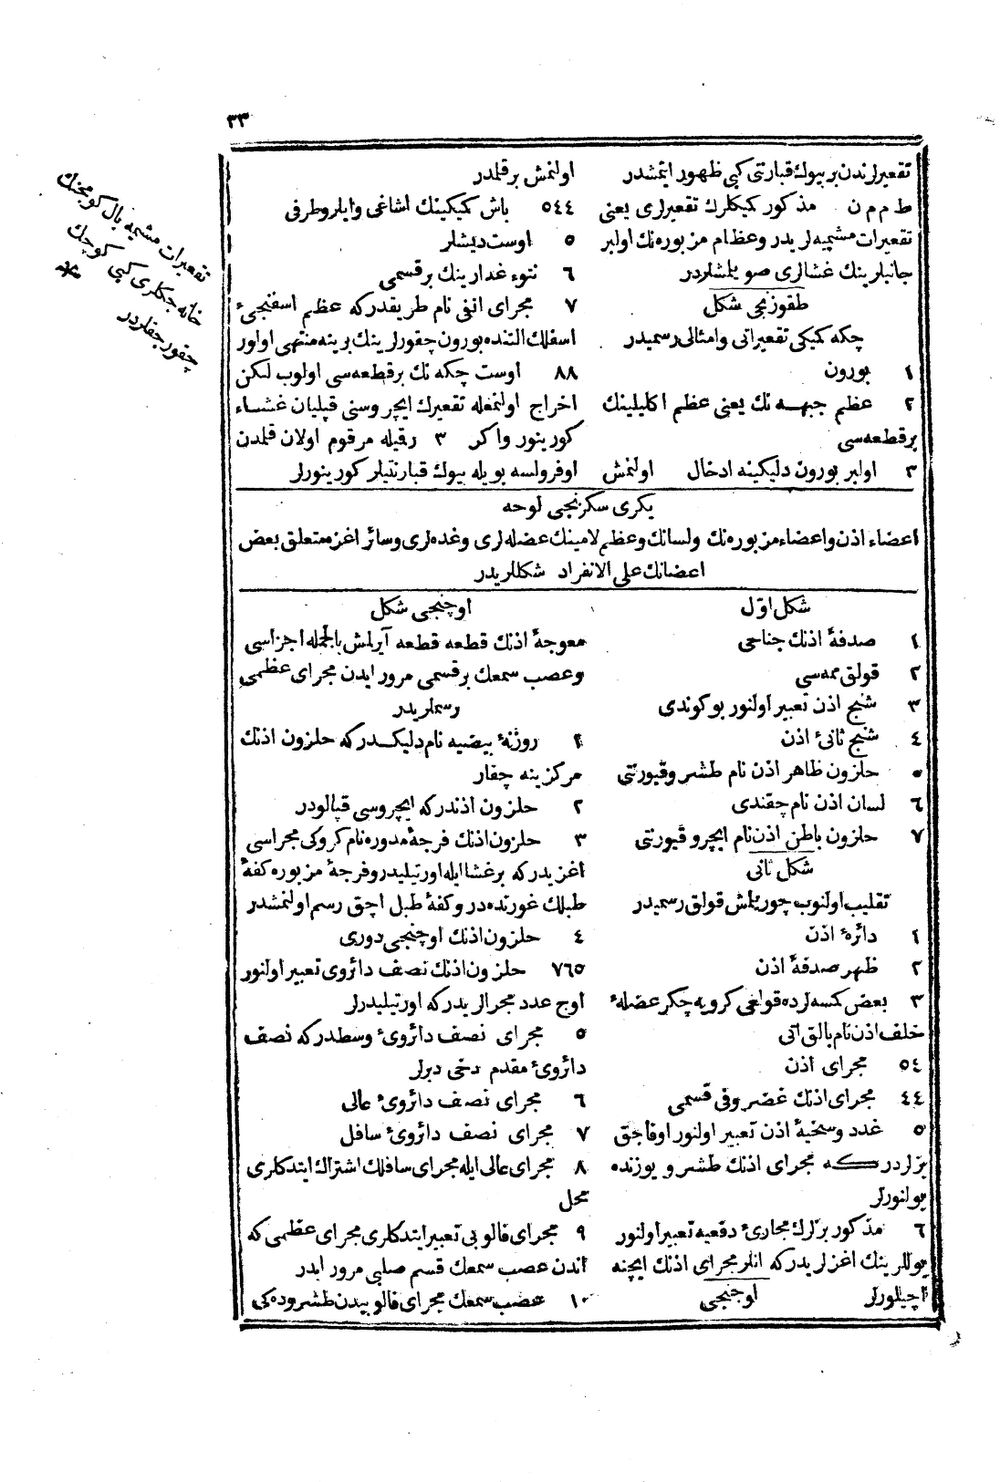 ٣٣
تقعيرلرندن بر بيوك قبارتى كبى ظهور ايتمشدر
ط م م ن مذكور كميكلرك تقعيرلرى يعنى
تقعيرات مشيميه لريدر وعظام مزبوره نك اولبر
جانبلرينك غشالرى صويلمشلردر
طقوزنجى شكل
چكه كميكى تقعيراتى وامثالى رسميدر
١ بورون
٢ عظم جبهه نك يعنى عظم اكليلينك
بر قطعه سى
٣ اولبر بورون دليكينه ادخال اولنمش
اولنمش بر قلمدر
٥٤٤ باش كميكينك اشاغى وايلرو طرفى
٥ اوست ديشلر
٦ نتوء غدارينك بر قسمى
٧ مجراى انفى نام طريقدر كه عظم اسفنجئ
اسفلك التنده بورون چقورلرينك برينه منتهى اولور
٨٨ اوست چكه نك بر قطعه سى اولوب لكن
اخراج اولنمغله تقعيرك ايچروسنى قپليان غشاء
كورينور واكر ٣ رقيله مرقوم اولان قلمدن
اوفرولسه بويله بيوك قبارنتيلر كورينورلر
تقعيرات مشيميه بال كومجنك
خانه جكلرى كبى كوچك
چقورجقلردر
يكرى سكزنجى لوحه
اعضاء اذن واعضاء مزبوره نك ولسانك وعظم لامينك عضله لرى وغده لرى وسائر اغزه متعلق بعض
اعضانك على الانفراد شكللريدر
شكل اوّل
١ صدفهٔ اذنك جناحى
٢ قولق ممه سى
٣ شنج اذن تعبير اولنور بوكوندى
٤ شنج ثانئ اذن
٥ حلزون ظاهر اذن نام طشرو قبورنتى
٦ لسان اذن نام چقندى
٧ حلزون باطن اذن نام ايچرو قبورنتى
شكل ثانى
تقليب اولنوب چورلمش قولق رسميدر
١ دائرهٔ اذن
٢ ظهر صدفهٔ اذن
٣ بعض كمسه لرده قولاغى كرويه چكر عضلهٔ
خلف اذن نام بالق اتى
٥٤ مجراى اذن
٤٤ مجراى اذنك غضروفى قسمى
٥ غدد وسخيهٔ اذن تعبير اولنور اوفاجق
بزلردر كه مجراى اذنك طشرو يوزنده
بولنورلر
٦ مذكور بزلرك مجارئ دقعيه تعبير اولنور
يوللرينك اغزلريدر كه انلر مجراى اذنك ايچنه
اچيلورلر
اوجنجى
اوچنجى شكل
معوجهٔ اذنك قطعه قطعه آيرلمش بالجمله اجزاسى
وعصب سمعك بر قسمى مرور ايدن مجراى عظمى
رسملريدر
١ روزنهٔ بيضيه نام دليكدر كه حلزون اذنك
مركزينه چقار
٢ حلزون اذندر كه ايچروسى قپالودر
٣ حلزون اذنك فرجهٔ مدوره نام كروكى مجراسى
اغزيدر كه بر غشا ايله اورتيليدر وفرجهٔ مزبوره كفهٔ
طبلك غورنده در وكفهٔ طبل اچق رسم اولنمشدر
٤ حلزون اذنك اوچنجى دورى
٧٦٥ حلزون اذنك نصف دائروى تعبير اولنور
اوج عدد مجرالريدر كه اورتيليدرلر
٥ مجراى نصف دائروئ وسطدر كه نصف
دائروئ مقدم دخى ديرلر
٦ مجراى نصف دائروئ عالى
٧ مجراى نصف دائروئ سافل
٨ مجراى عالى ايله مجراى سافلك اشتراك ايتدكلرى
محل
٩ مجراى فالوپى تعبير ايتدكلرى مجراى عظمى كه
اندن عصب سمعك قسم صلبى مرور ايدر
١٠ عصب سمعك مجراى فالوپيدن طشروده كى